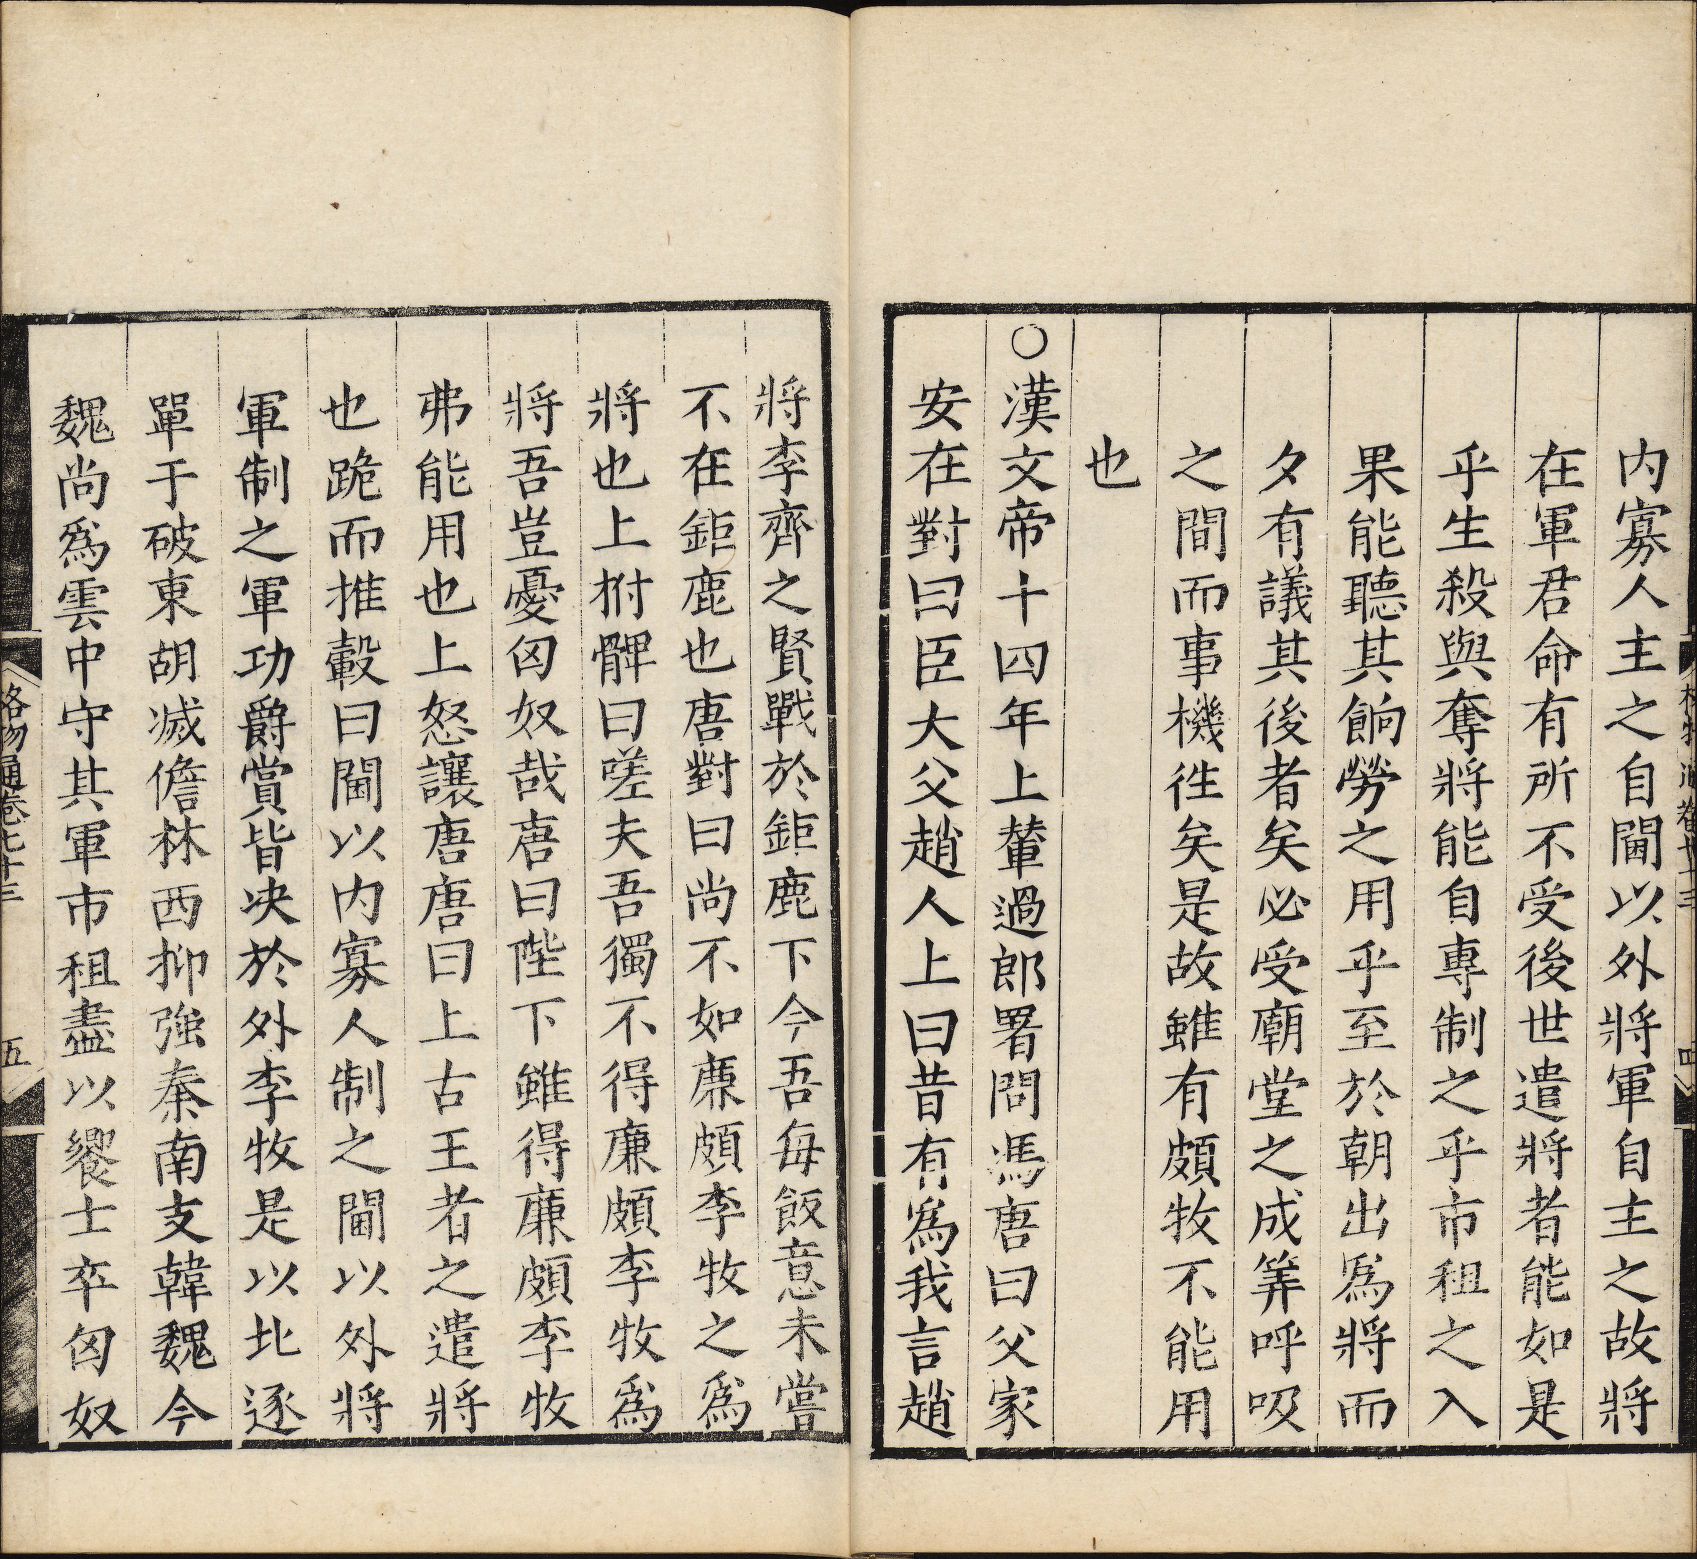 内寡人主之自閫以外將軍自主之故將
在軍君命有所不受後世遣將者能如是
乎生殺與奪將能自專制之乎市租之入
果能聽其餉勞之用乎至於朝出爲將而
夕有議其後者矣必受廟堂之成筭呼吸
之間而事機徃矣是故雖有頗牧不能用
也
○漢文帝十四年上輦過郎署問馮唐曰父家
安在對曰臣大父趙人上曰昔有爲我言趙
將李齊之賢戰於鉅鹿下今吾每飯意未嘗
不在鉅鹿也唐對曰尚不如廉頗李牧之爲
將也上拊髀曰嗟夫吾獨不得廉頗李牧爲
將吾豈憂匈奴哉唐曰陛下雖得廉頗李牧
弗能用也上怒讓唐唐曰上古王者之遣將
也跪而推轂曰閫以内寡人制之閫以外將
軍制之軍功爵賞皆决於外李牧是以北逐
單于破東胡滅儋林西抑強秦南支韓魏今
魏尚爲雲中守其軍市租盡以饗士卒匈奴
格物通卷七十三 五